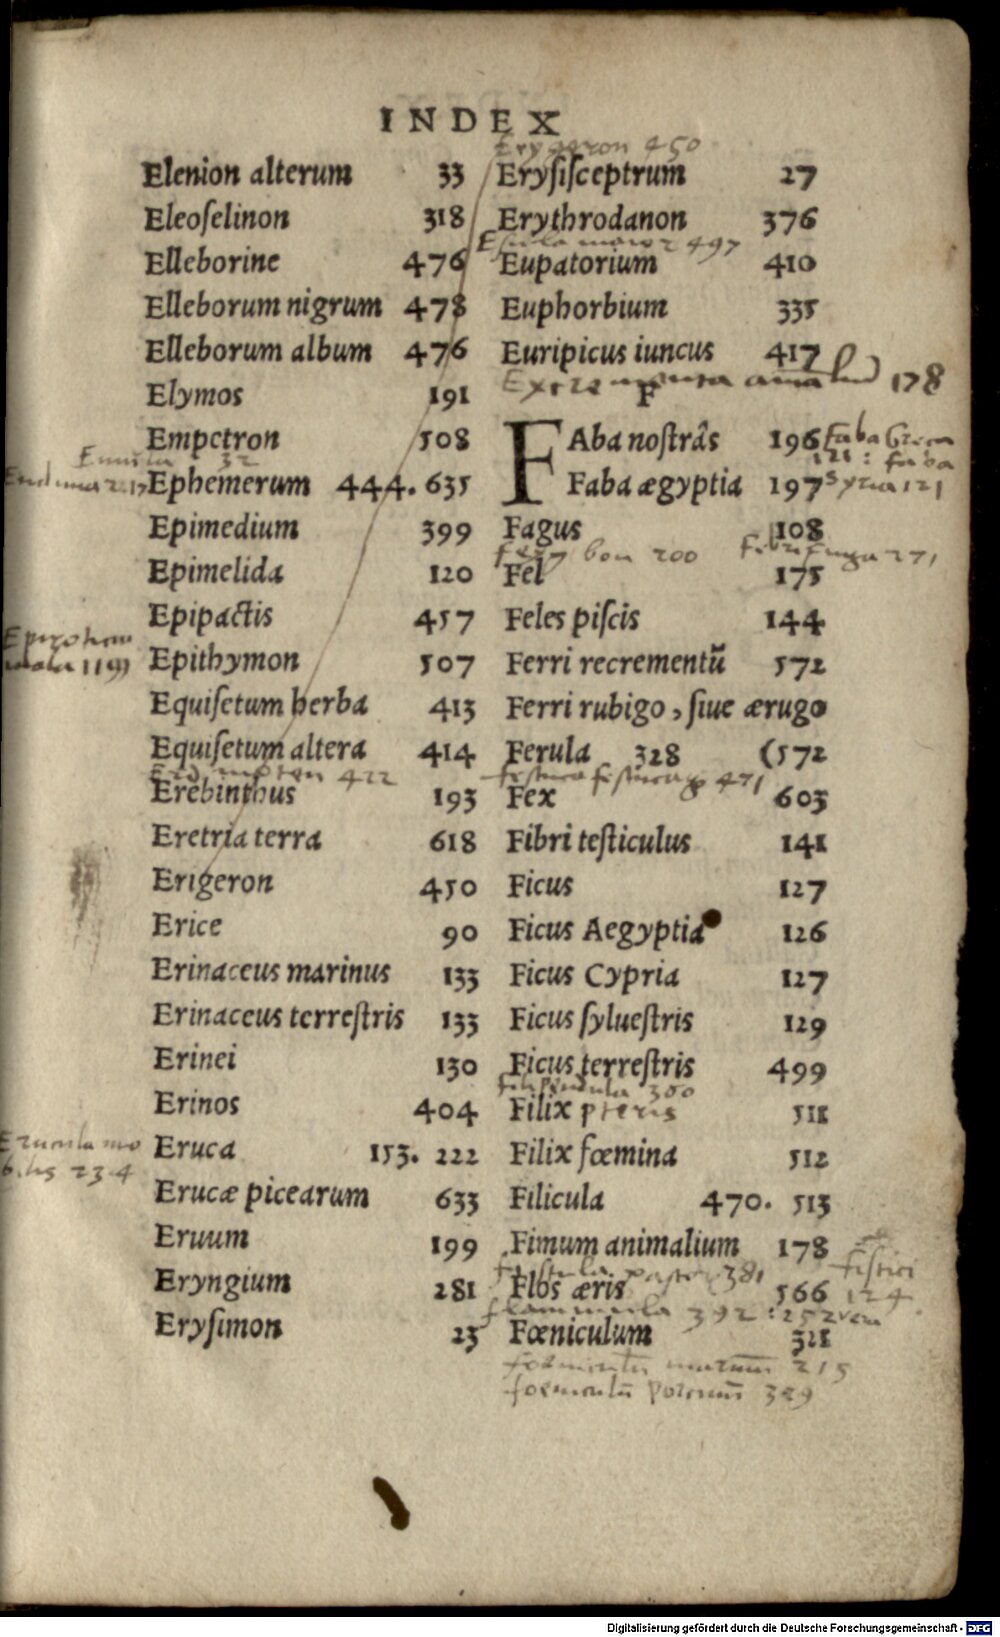 INDEX
Elenion alterum 33
Eleoſelinon 318
Elleborine 476
Elleborum nigrum 478
Elleborum album 476
Elymos 191
Empctron 508
32
Ephemerum 444. 635
Epimedium 399
Epimelida 120
Epipactis 457
Epithymon 507
Equiſetum herba 413
Equiſetum altera 414
422
Erebinthus 193
Eretria terra 618
Erigeron 450
Erice 90
Erinaceus marinus 133
Erinaceus terreſtris 133
Erinei 130
Erinos 404
Eruca 153. 222
234
Erucæ picearum 633
Eruum 199
Eryngium 281
Eryſimon 23
Erygeron 450
Eryſiſceptrum 27
Erythrodanon 376
Esula maior 497
Eupatorium 410
Euphorbium 335
Euripicus iuncus 417
178
F
FAba noſtrâs 196
faba
Faba ægyptia 197
Syria 121
Fagus 108
200
Febrifuga 271
Fel 175
Feles piſcis 144
Ferri recrementũ 572
Ferri rubigo, ſiue ærugo
Ferula 328 (572
471
Fex 603
Fibri teſticulus 141
Ficus 127
Ficus Aegyptia 126
Ficus Cypria 127
Ficus ſylueſtris 129
Ficus terreſtris 499
filipendula 300
Filix pteris 511
Filix fœmina 512
Filicula 470. 513
Fimum animalium 178
fistula pastor 381
fistici
124
Flos æris 566
flammula 392
Fœniculum 321
215
foeniculũ porcinũ 329
Digitalisierung gefördert durch die Deutsche Forschungsgemeinschaft - DFG